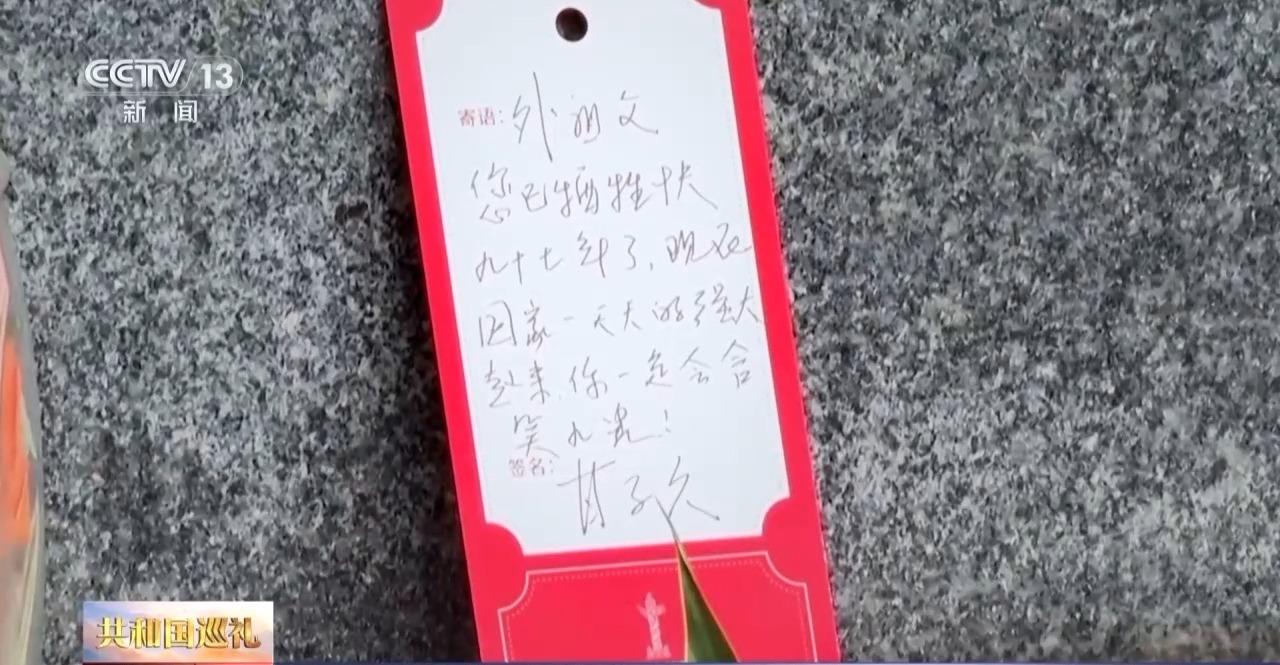 CCTV 13
新闻
寄语: 外祖父
您已牺牲快
九十七年了,现在
国家一天天的强大
起来,你一定会含
笑九泉!
签名:
甘子久
共和国巡礼